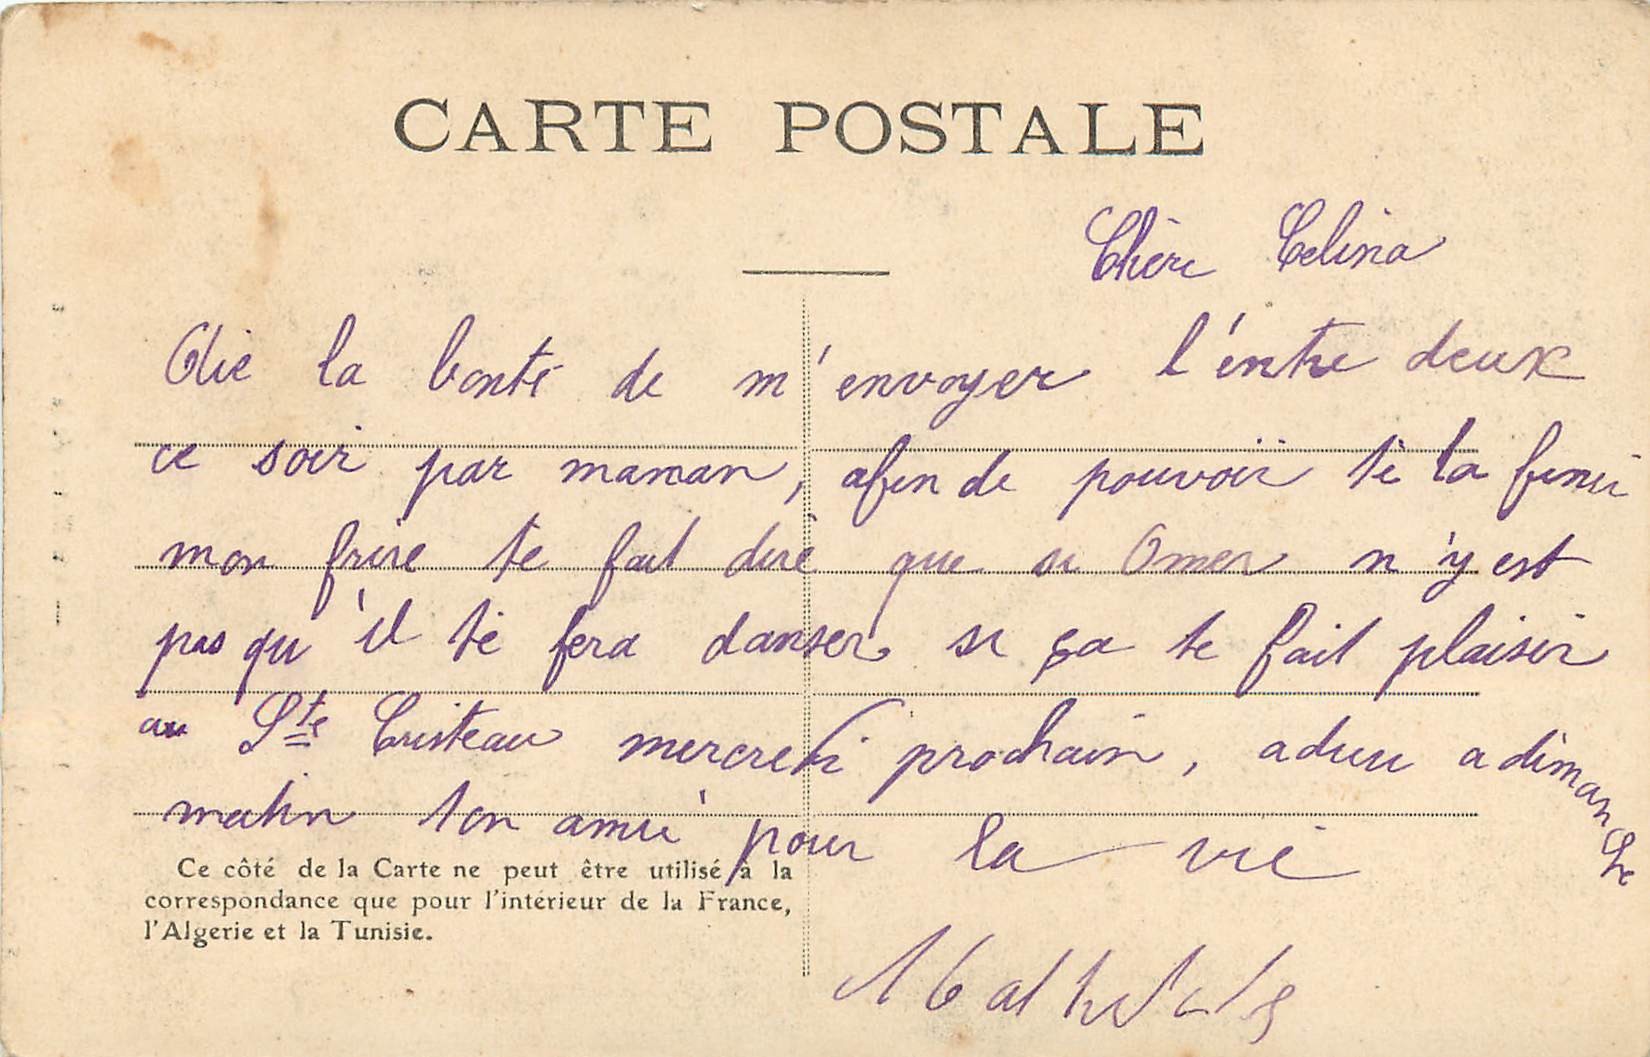 CARTE POSTALE
Chère Celina
Aie la bonté de m'envoyer l'entre deux
ce soir par maman, afin de pouvoir te la finir
mon frire te fait dire que si Omer n'y est
pas qu'il te fera danser si ça te fait plaisir
au Ste Cristeau mercredi prochain, adieu a dimanche
matin ton amie pour la vie
Ce côté de la Carte ne peut être utilisé à la
correspondance que pour l'intérieur de la France,
l'Algérie et la Tunisie.